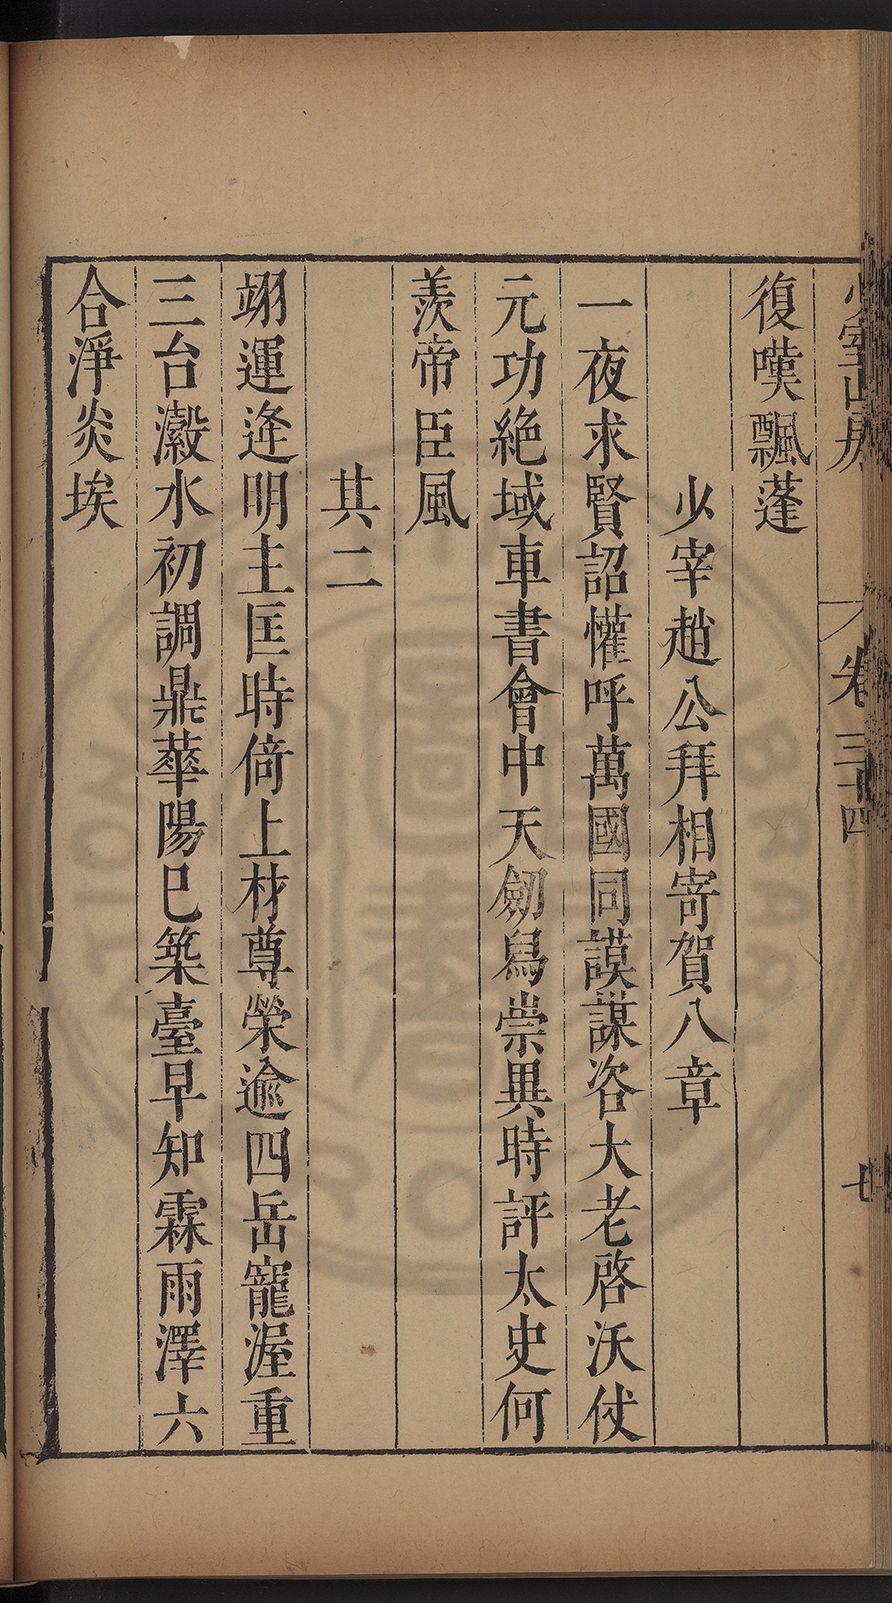 少室山房 卷三十四 七
復嘆飄蓬
少宰趙公拜相寄賀八章
一夜求賢詔懽呼萬國同謨謀咨大老啓沃仗
元功絶域車書會中天劒舄崇異時評太史何
羨帝臣風
其二
翊運逄明主匡時倚上材尊榮逾四岳寵渥重
三台瀫水初調鼎華陽巳築臺早知霖雨澤六
合淨炎埃